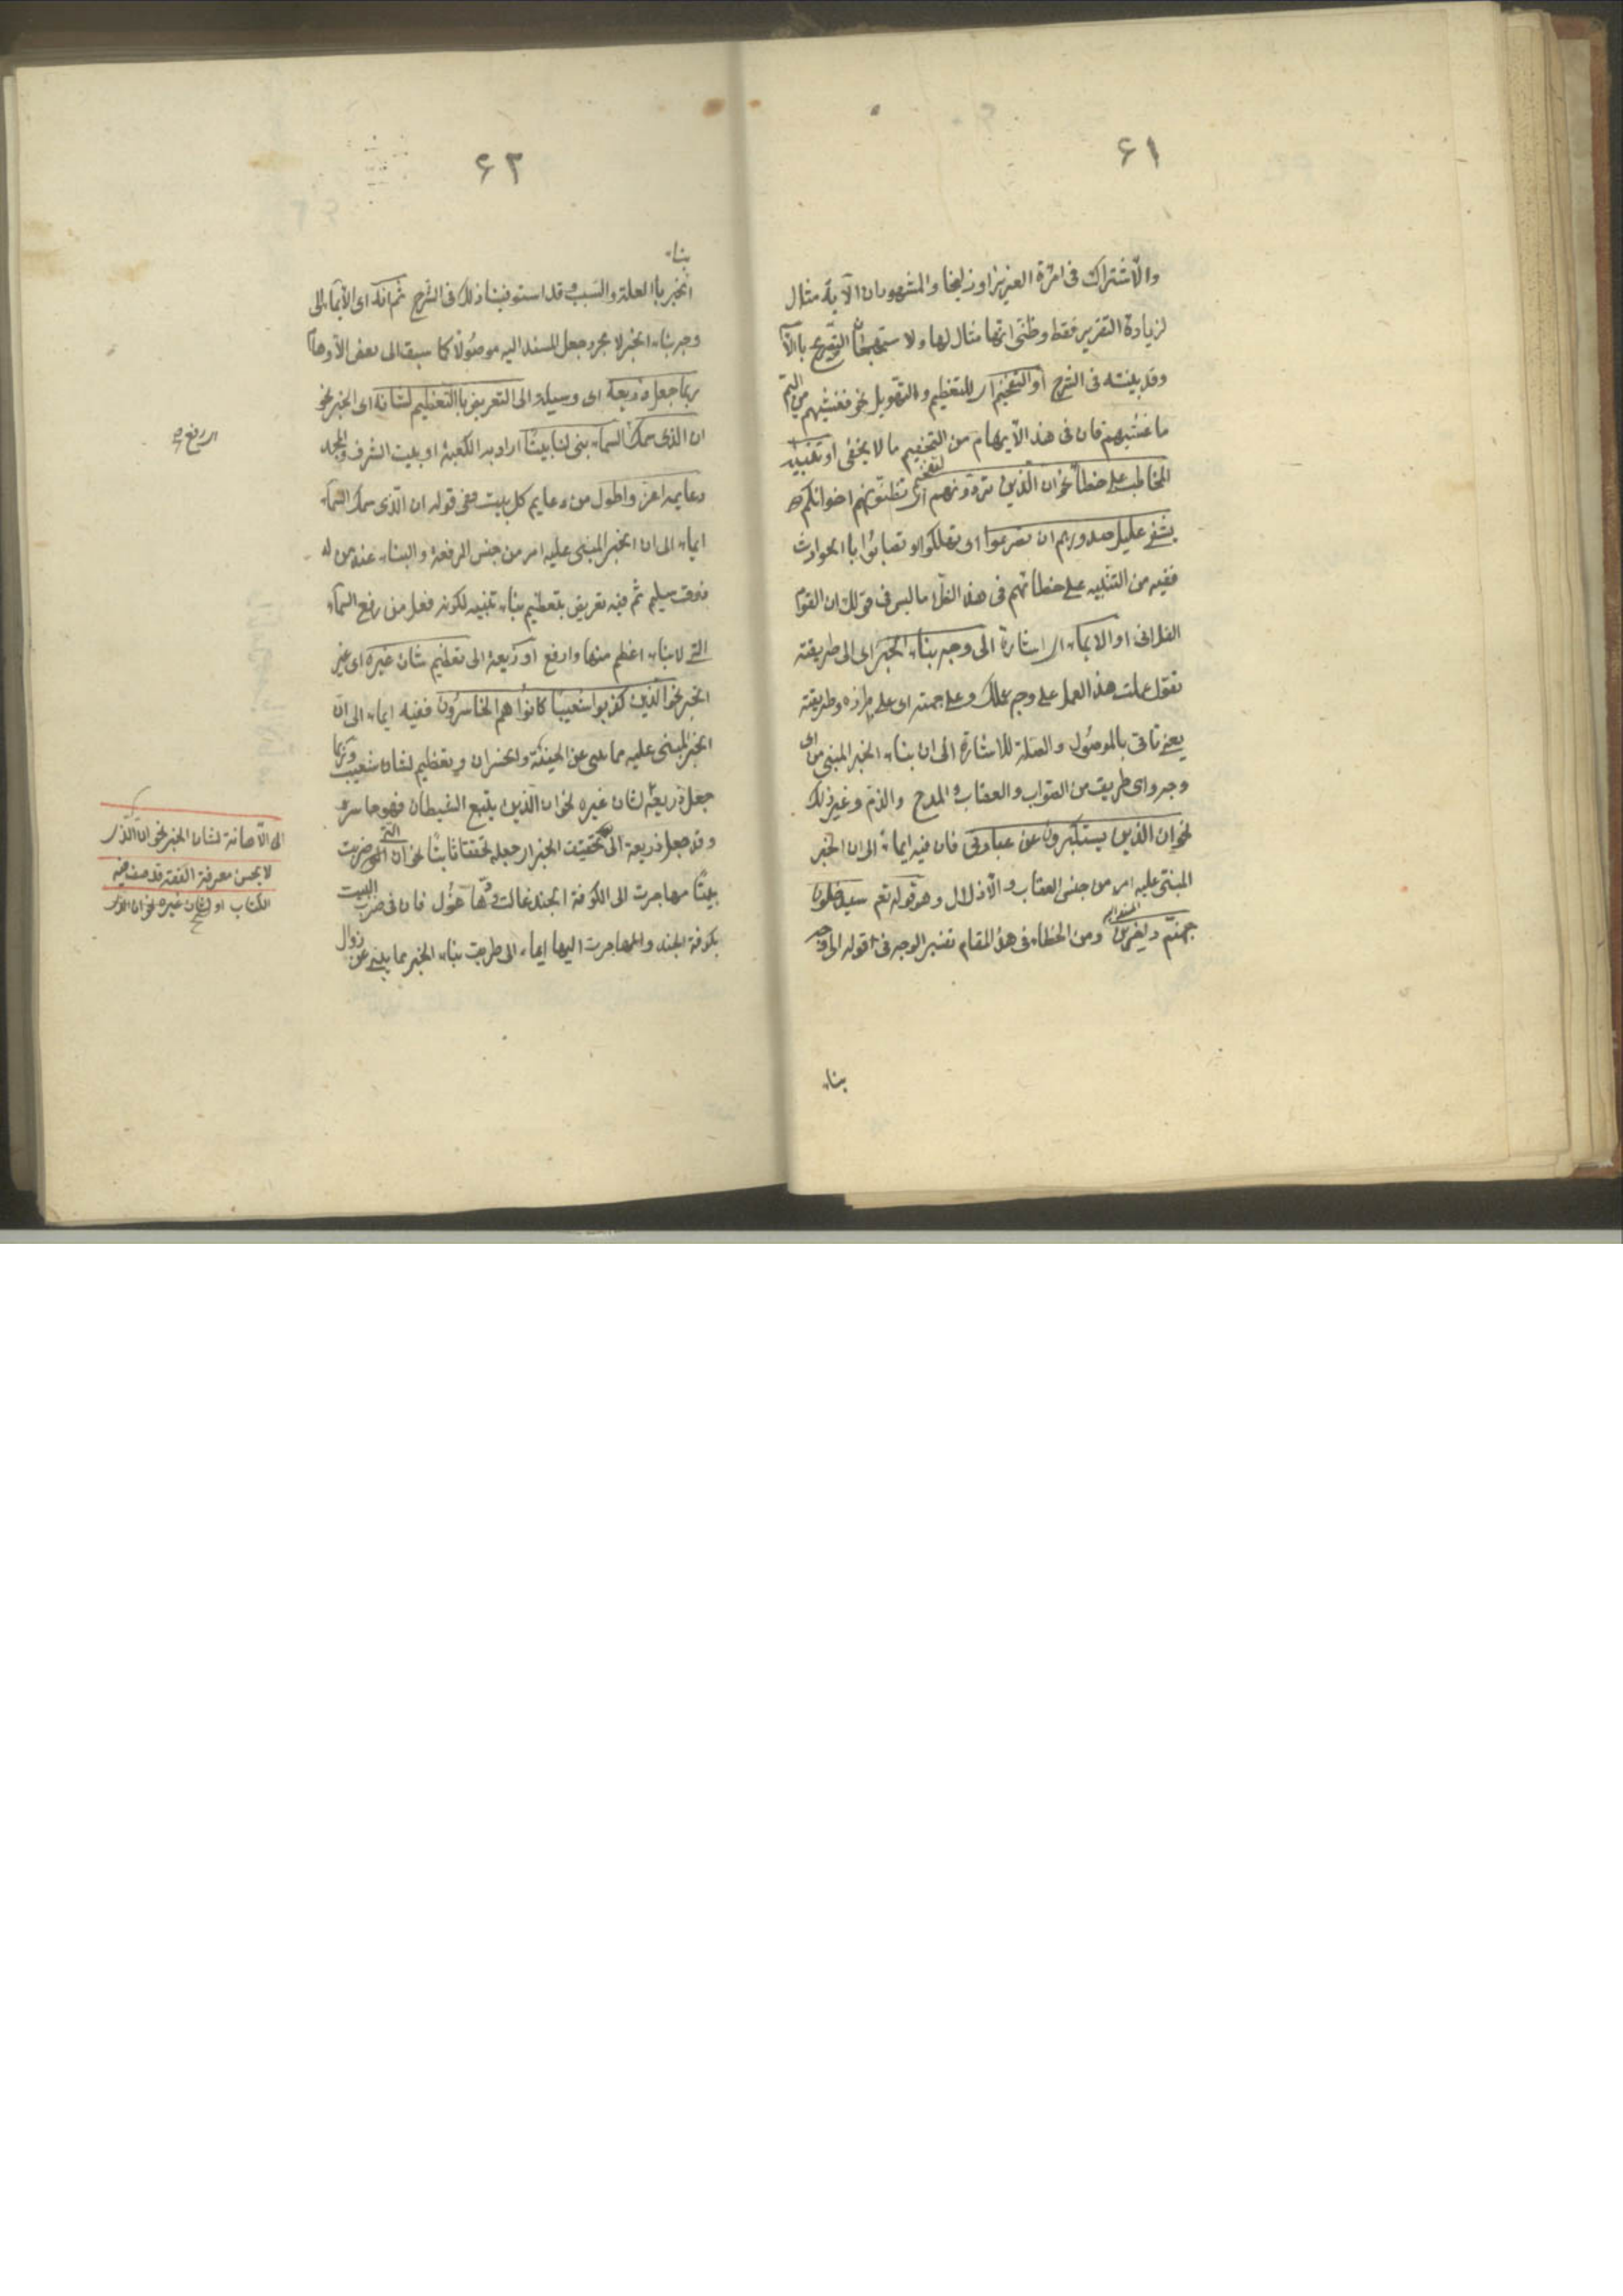 ٦١
والاشتراك فى امرٔة العزيز او زليخا والمشهور ان الآية مثال
لزيادة التقرير فقط وظنى انها مثال لها ولاستهجان التصريح بالاسم
وقد بينته فى الشرح او التفخيم اى للتعظيم والتهويل نحو فغشيهم من اليم
ما غشيهم فان فى هذا الابهام من التفخيم ما لا يخفى او تنبيه
المخاطب على خطأ نحو ان الذين ترونهم اى تظنونهم اخوانكم
يشفى غليل صدورهم ان تصرعوا اى تهلكوا او تصابوا باالحوادث
ففيه من التنبيه على خطائهم فى هذا الظن ما ليس فى قولك ان القوم
الفلانى او الايماء اى اشارة الى وجه بناء الخبر اى الى طريقته
تقول عملت هذا العمل على وجه عملك وعلى جهته اى على طرزه وطريقته
يعنى تاتى بالموصول والصلة للاشارة الى ان بناء الخبر المبنى من اى
وجه واى طريق من الثواب والعقاب والمدح والذم وغير ذلك
نحو ان الذين يستكبرون عن عبادتى فان فيه ايماء الى ان الخبر
المبنى عليه امر من جنس العقاب والاذلال وهو قوله تعم سيدخلون
جهنم داخرين ومن الخطاء فى هذا المقام تفسير الوجه فى قوله الى وجه
بناء
٦٢
بناء
الخبر باالعلة والسبب قد استوفينا ذلك فى الشرح ثم انه اى الايماء الى
وجه بناء الخبر لا مجرد جعل المسند اليه موصولا كما سبق الى بعض الاوهام
ربما جعل ذريعة اى وسيلة الى التعريض باالتعظيم لشانه اى الخبر نحو
ان الذى سمك السماء بنى لنا بيتا اراد به الكعبة او بيت الشرف والمجد
دعايمه اعز واطول من دعايم كل بيت ففى قوله ان الذى سمك السماء
ايماء الى ان الخبر المبنى عليه امر من جنس الرفعة والبناء عند من له
ذوق سليم ثم فيه تعريض بتعظيم بناء بيته لكونه فعل من رفع السماء
التى لا بناء اعظم منها وارفع او ذريعة الى تعظيم شان غيره اى غير
الخبر نحو الذين كذبوا شعيبا كانوا هم الخاسرون ففيه ايماء الى ان
الخبر المبنى عليه مما ينبى عن الخيبة والخسران وتعظيم لشان شعيب وربما
جعل ذريعة لشان غيره نحو ان الذين يتبع الشيطان فهو خاسر
وقد جعل ذريعة الى تحقيق الخبر اى جعله محققا ثابتا نحو ان التى ضربت
بيتا مهاجرت الى الكوفة الجند غالت ودها غول فان فى ضرب البيت
بكوفة الجند والمهاجرت اليها ايماء الى طريق بناء الخبر مما ينبى عن زوال
اى رفع
الى الاهانة لشان الخبر نحو ان الذى
لا يحسن معرفة الفقه قد صنف فيه
الكتاب او لشان غيره نحو ان الذى